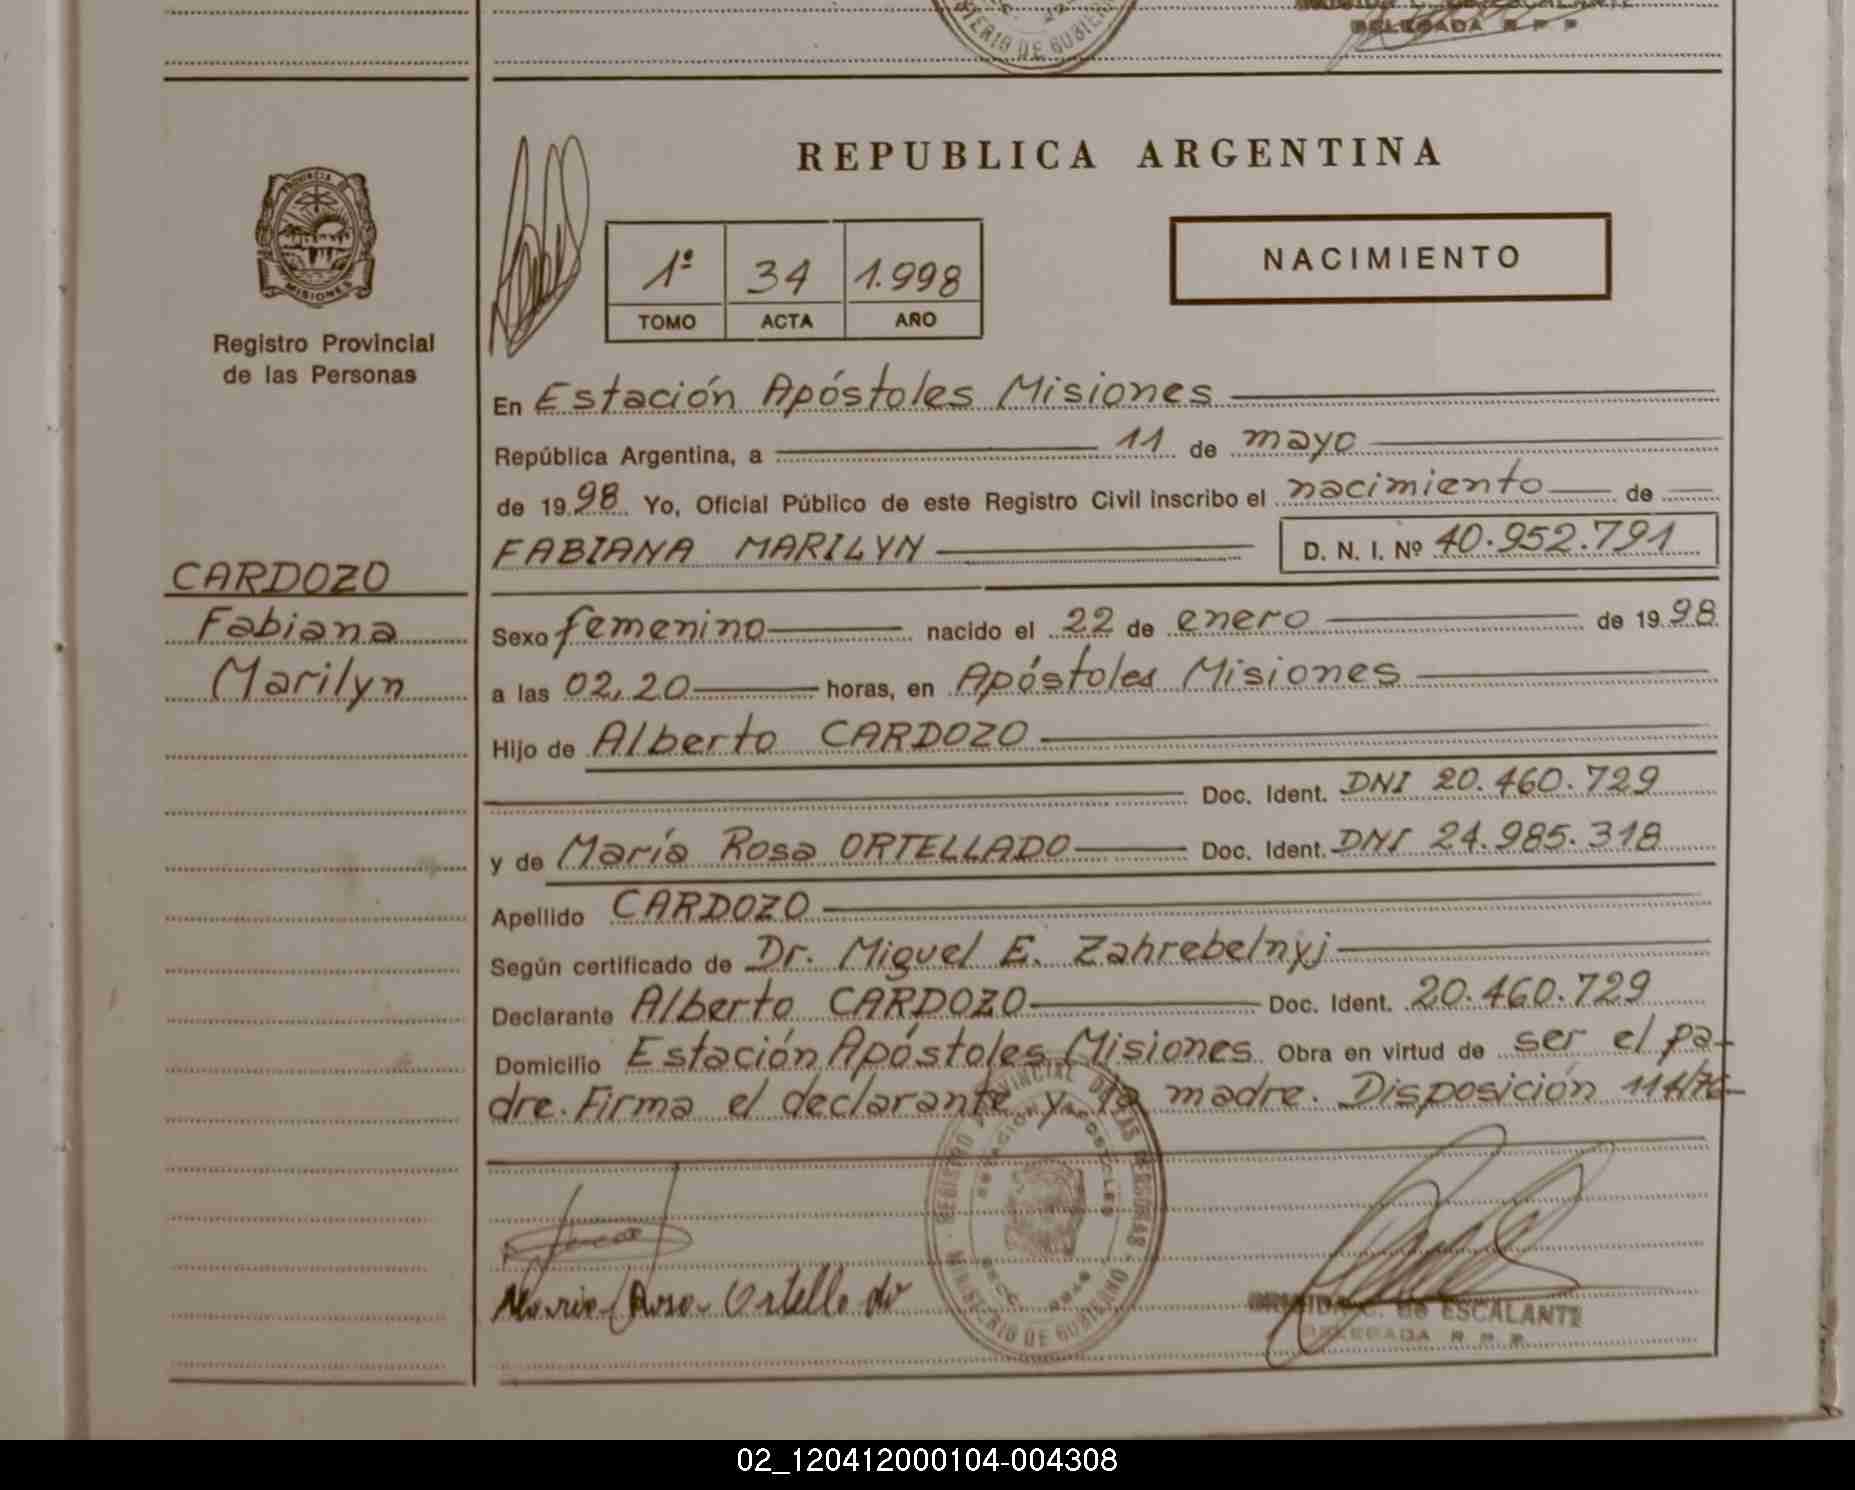 MINISTERIO DE GOBIERNO
DELEGADA R P P
REPUBLICA ARGENTINA
PROVINCIA DE
MISIONES
1º 34 1.998
TOMO ACTA AÑO
NACIMIENTO
Registro Provincial
de las Personas
En Estación Apóstoles Misiones
República Argentina, a 11 de mayo
de 1998 Yo, Oficial Público de este Registro Civil inscribo el nacimiento de
FABIANA MARILYN D. N. I. Nº 40.952.791
CARDOZO
Fabiana
Marilyn
Sexo femenino nacido el 22 de enero de 1998
a las 02,20 horas, en Apóstoles Misiones
Hijo de Alberto CARDOZO
Doc. Ident. DNI 20.460.729
y de María Rosa ORTELLADO Doc. Ident. DNI 24.985.318
Apellido CARDOZO
Según certificado de Dr. Miguel E. Zahrebelnyj
Declarante Alberto CARDOZO Doc. Ident. 20.460.729
Domicilio Estación Apóstoles Misiones Obra en virtud de ser el pa-
dre. Firma el declarante y la madre. Disposición 114/76-
REGISTRO PROVINCIAL DE LAS PERSONAS
ESTACION APOSTOLES
MINISTERIO DE GOBIERNO
Maria Rosa Ortellado
C. de ESCALANTE
DELEGADA R.P.P.
02_120412000104-004308